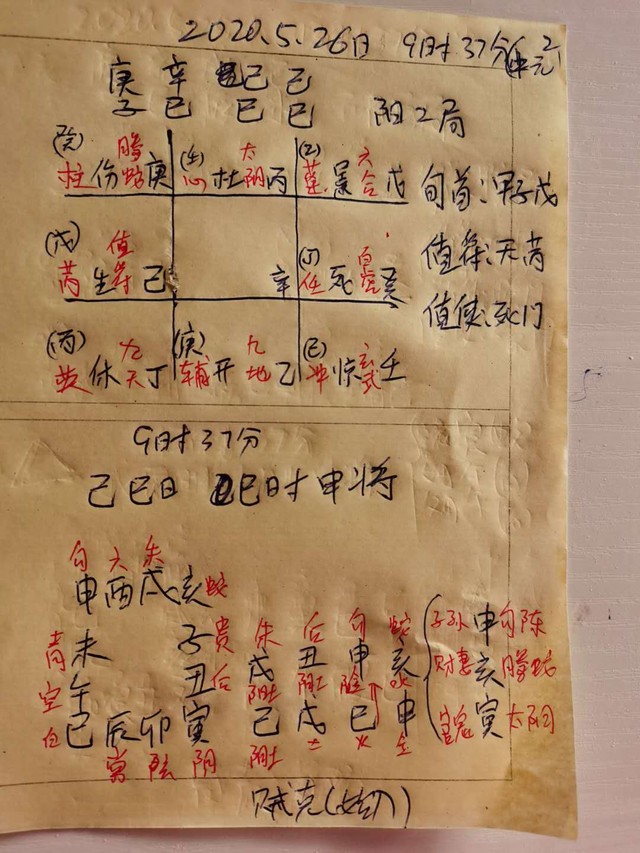 2020.5.26日 9时37分(中元)
庚 辛 己 己
子 巳 巳 巳 阳2局
(癸) 腾 (壬) 太 (乙) 六
柱 伤 蛇 庚 心 杜 阴 丙 蓬 景 合 戊 旬首:甲子戊
(戊) 值 (丁) 白
芮 生 符 己 辛 任 死 虎 癸 值符:天芮
值使:死门
(丙) 九 (庚) 九 (己) 玄
英 休 天 丁 辅 开 地 乙 冲 惊 武 壬
9时37分
己巳日 巳时申将
勾 六 朱
申 酉 戌 亥 蛇
青 未 子 贵 朱 后 勾 蛇 子孙 申 勾陈
空 午 丑 后 戌 丑 申 亥 财妻 亥 腾蛇
白 巳 辰 卯 寅 己 戌 巳 申 官鬼 寅 太阴
常 玄 阴 阴土 土 火 金
贼克(始入)